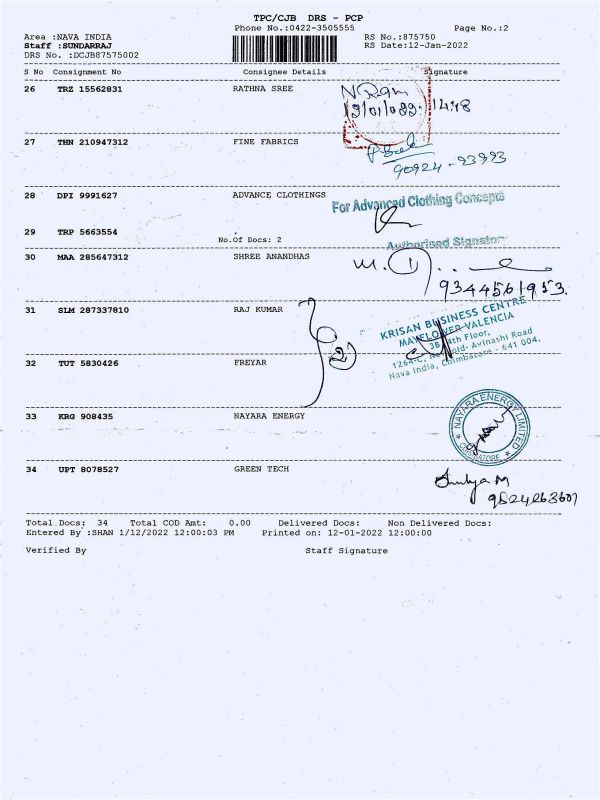 TPC/CJB DRS - PCP
Phone No.:0422-3505555 Page No.:2
Area :NAVA INDIA RS No.:875750
Staff :SUNDARRAJ RS Date:12-Jan-2022
DRS No. :DCJB87575002
S No Consignment No Consignee Details Signature
26 TRZ 15562831 RATHNA SREE
27 THN 210947312 FINE FABRICS
90924-93993
28 DPI 9991627 ADVANCE CLOTHINGS
For Advanced Clothing Concepts
29 TRP 5663554
No.Of Docs: 2
Authorised Signatory
30 MAA 285647312 SHREE ANANDHAS
31 SLM 287337810 RAJ KUMAR
(2)
KRISAN BUSINESS CENTRE
MAYFLOWER VALENCIA
4th Floor,
Avinashi Road
Nava India, Coimbatore - 641 004.
32 TUT 5830426 FREYAR
33 KRG 908435 NAYARA ENERGY
NAYARA ENERGY LIMITED
COIMBATORE
34 UPT 8078527 GREEN TECH
Total Docs: 34 Total COD Amt: 0.00 Delivered Docs: Non Delivered Docs:
Entered By :SHAN 1/12/2022 12:00:03 PM Printed on: 12-01-2022 12:00:00
Verified By Staff Signature